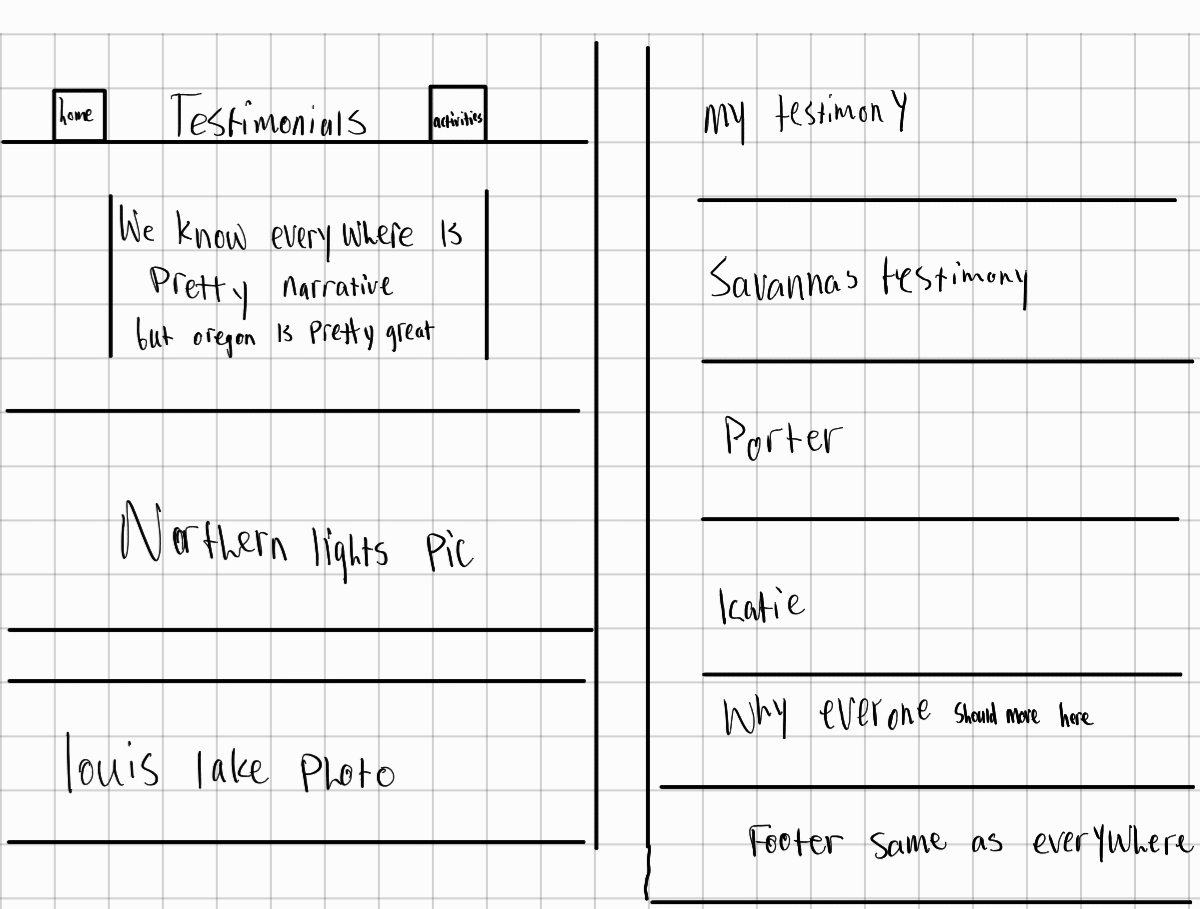 home
Testimonials
activities
We know everywhere is
Pretty narrative
but oregon is pretty great
Northern lights pic
louis lake photo
my testimony
Savannas testimony
Porter
Katie
Why everone should move here
Footer same as everywhere